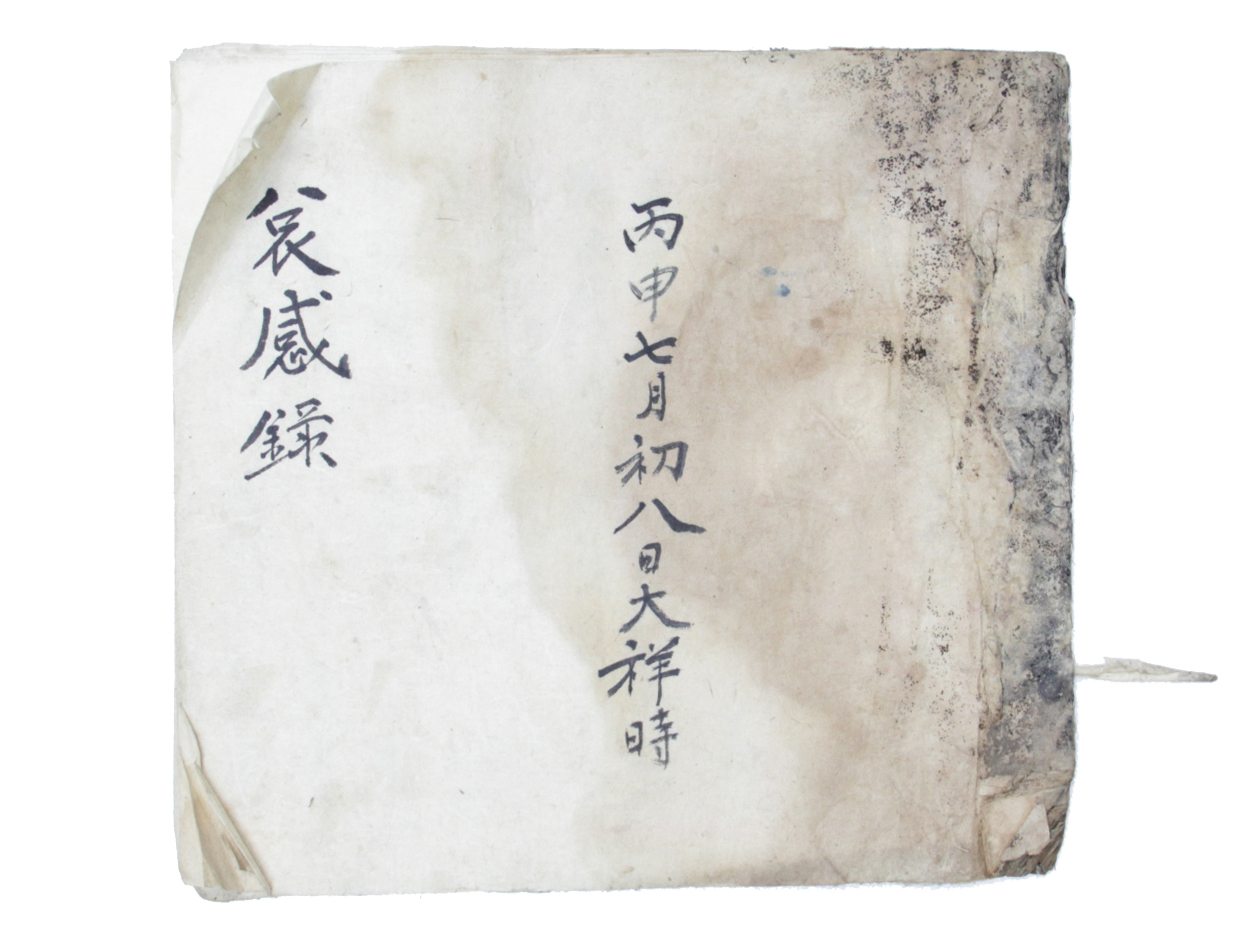 丙申七月初八日大祥時
哀感錄